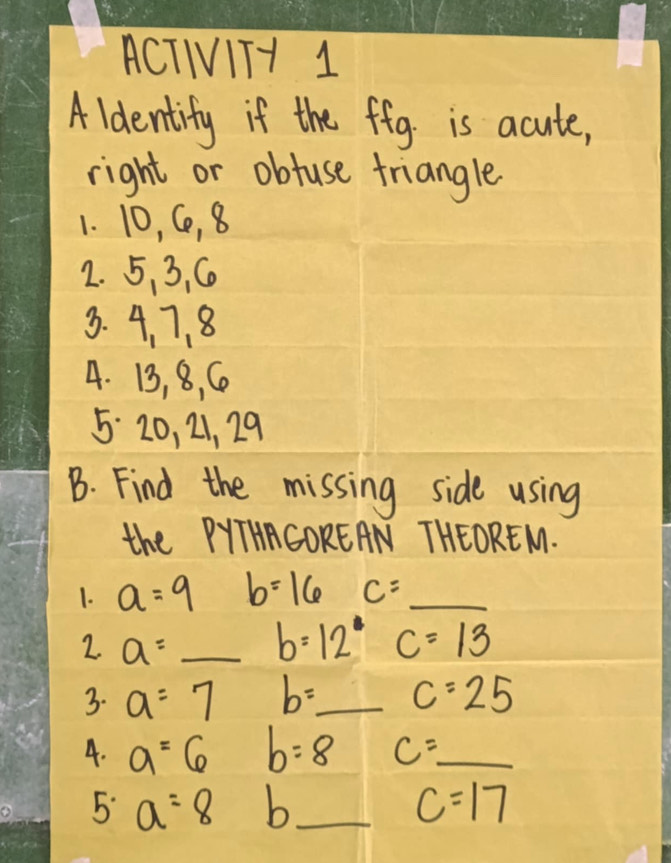 ACTIVITY 1
A Identify if the ffg. is acute,
right or obtuse triangle.
1. 10, 6, 8
2. 5, 3, 6
3. 4, 7, 8
4. 13, 8, 6
5. 20, 21, 29
B. Find the missing side using
the PYTHAGOREAN THEOREM.
1. a=9 b=16 c=___
2. a=___ b=12 c=13
3. a=7 b=___ c=25
4. a=6 b=8 c=___
5. a=8 b___ c=17